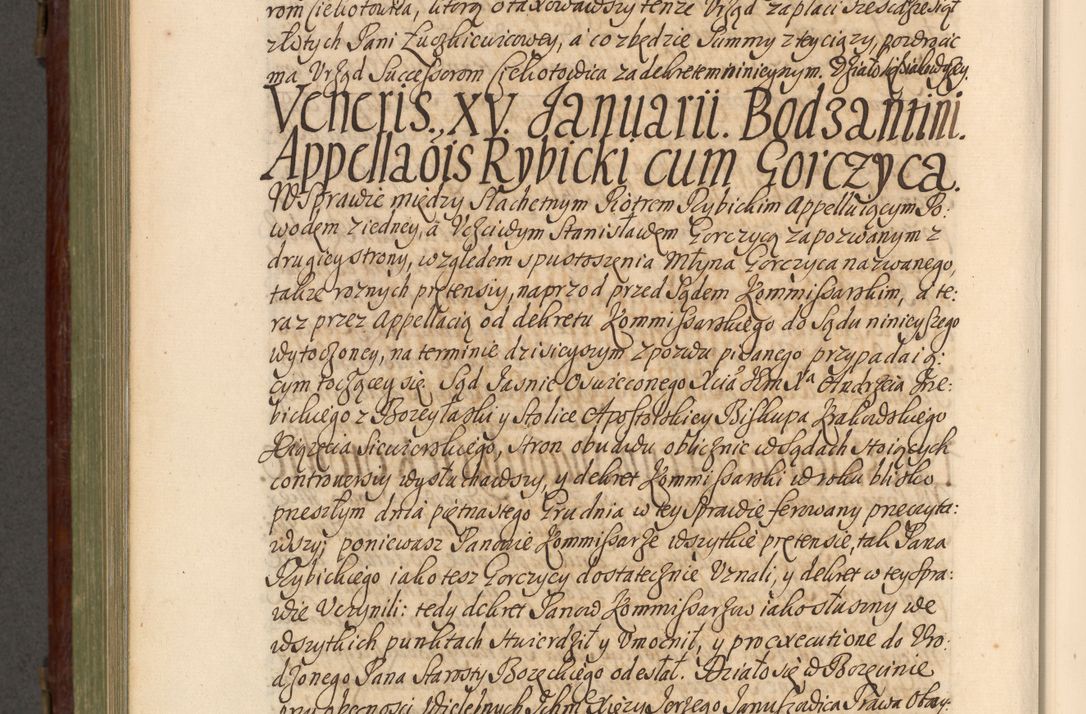 rom Ciekotowica, ktorą otaxowawszy tenże Urząd zapłaci sześćdziesiąt
złotych Pani Łuczkiewiczowey, a co zbędzie Summy z tey ciąży, pozdrzeć
ma Urząd Successorom Ciekotowica za dekretem ninieynym. Działo się jako wyżey.
Veneris. XV. Januarii. Bodzantini.
Appellaõis Rybicki cum Gorczyca.
W Sprawie między Slachetnym Piotrem Rybickim Appelluiącym Po:
wodem z iedney, a Uczciwym Stanisławem Gorczycą zapozwanym z
drugiey strony, względem spustoszenia Młyna Gorczyca nazwanego,
także roznych pretensiy, naprzod przed Sądem Kommissarskim, a te:
raz przez Appellacią od dekretu Kommissarskiego do Sądu ninieyszego
wytoczoney, na terminie dzisieyszym z pozwu pisanego przypadaią:
cym toczącey się. Sąd Jaśnie Oswieconego Xcia Jhm Xa Andrzeia Trze:
bickiego z Bozey łaski y Stolice Apostolskiey Biskupa Krakowskiego
Xiązęcia Siewierskiego, stron obudwu oblicznie w Sądach stoiących
controversiy wysłuchawszy, y dekret Kommissarski w roku blisko
przeszłym dnia piętnastego Grudnia w tey Sprawie ferowany przeczyta:
wszy; poniewasz Panowie Kommissarze wszytkie pretensie, tak Pana
Rybickiego iako tesz Gorczycy dostatecznie Uznali, y dekret w tey Spra:
wie Uczynili: tedy dekret Panow Kommissarzow iako słuszny we
wszytkich punktach stwierdził y Umocnił, y pro executione do Uro:
dzonego Pana Starosty Bozęckiego odesłał. Działo się w Bozęcinie
przy obecnosci Wielebnych Jchm Xięzy Jerzego Januszowica Prawa Oboy: